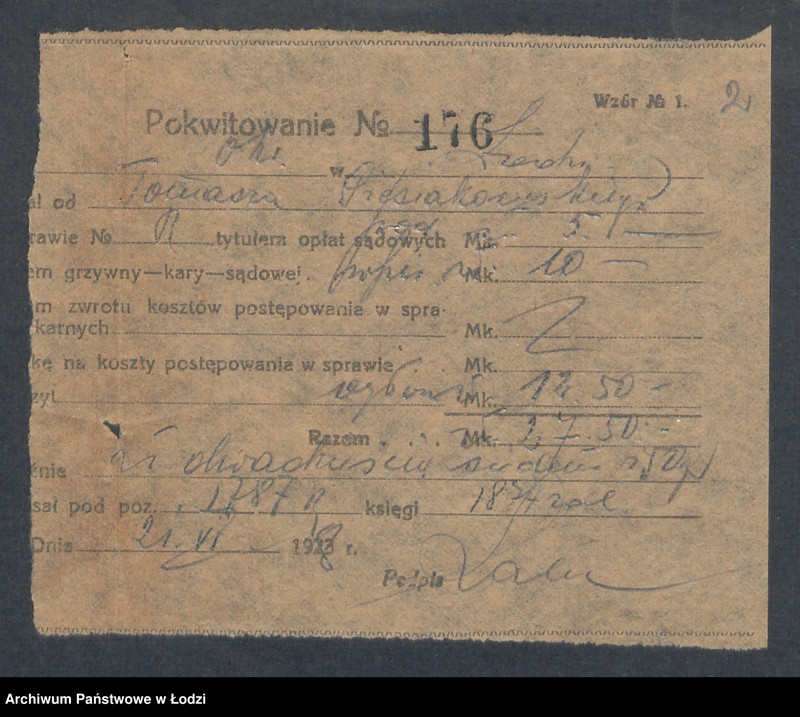 Wzór № 1. 2
Pokwitowanie № 176
w
ał od Tomasza
rawie № R tytułem opłat sądowych Mk. 5.—
em grzywny—kary—sądowej. Mk. 10—
m zwrotu kosztów postępowania w spra-
karnych Mk.
kę na koszty postępowania w sprawie Mk.
zyt. Mk. 12.50—
Razem . . . Mk. 27.50—
nie dwadzieścia siedem
sał pod poz. 1787 R księgi
Dnia 21.VI 1928 r.
Podpis
Archiwum Państwowe w Łodzi